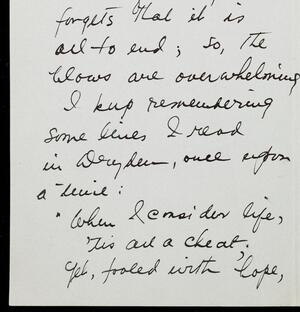 forgets that it is
all to end; so, the
blows are overwhelming
I keep remembering
some lines I read
in Dryden, once upon
a time:
"When I consider life,
'tis all a cheat;
Yet, fooled with hope,